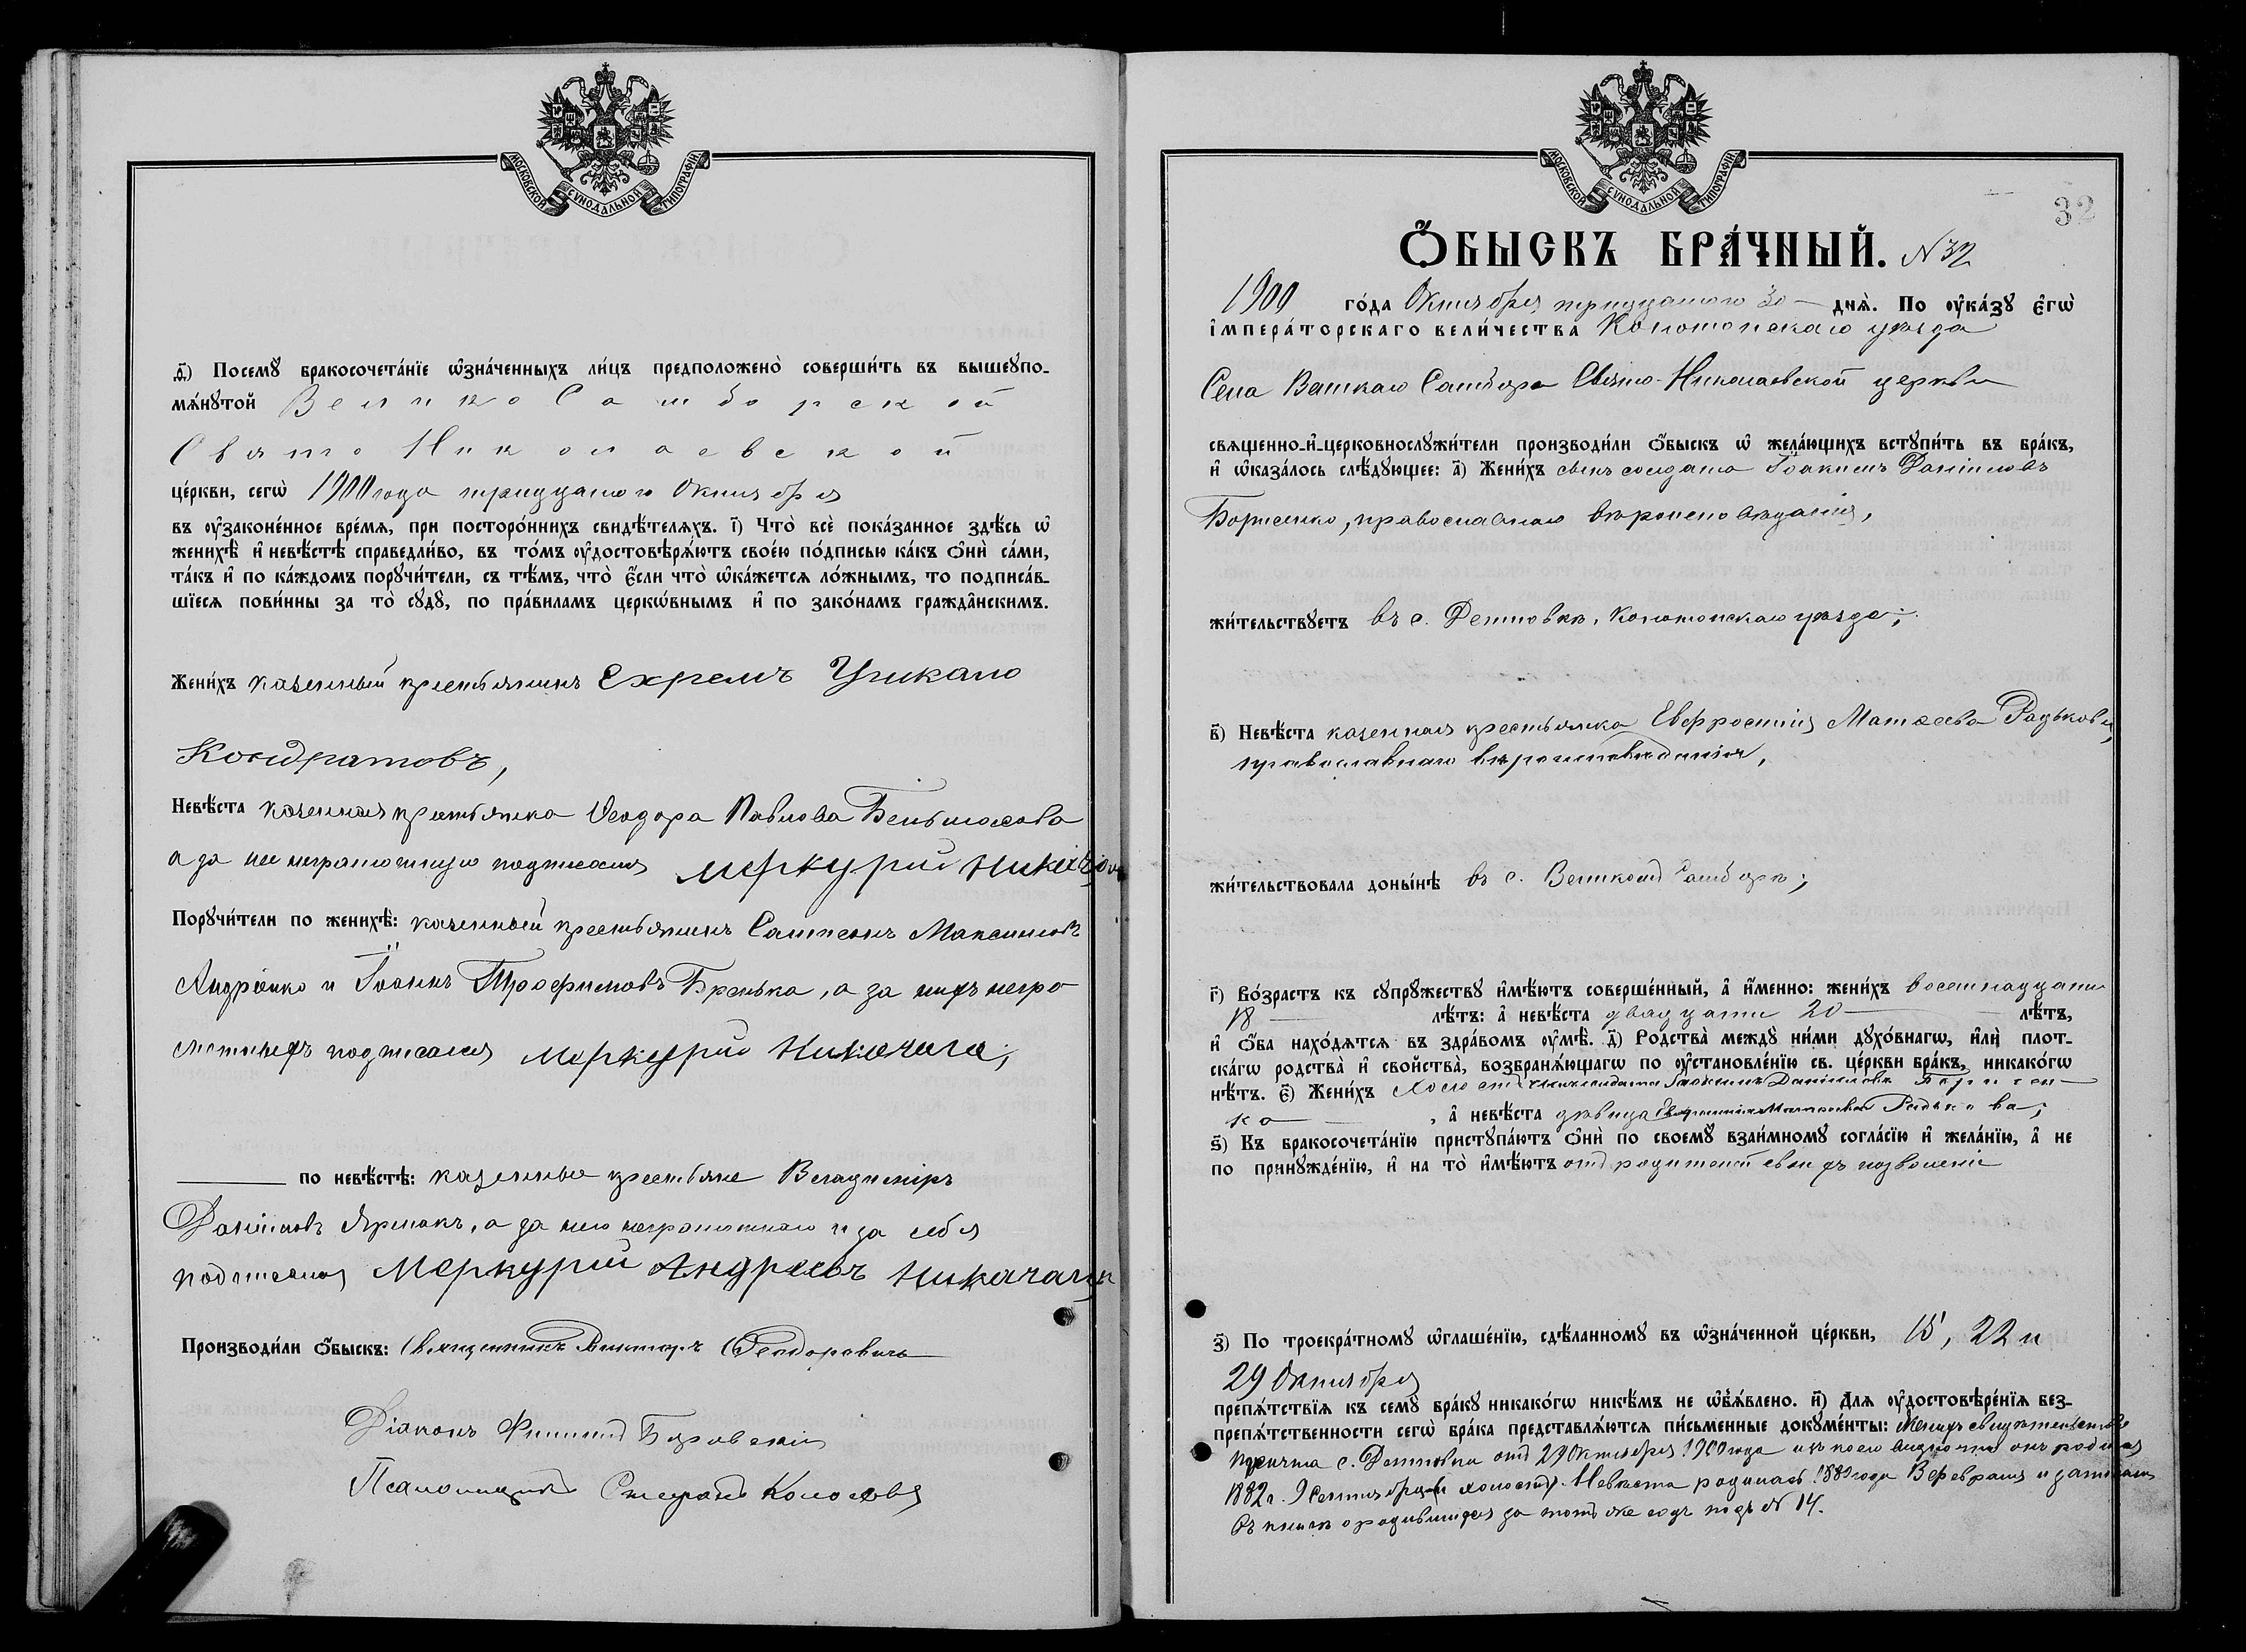 МОСКОВСКОЙ СѴНОДАЛЬНОЙ ТИПОГРАФІИ
ѳ҃) Посемꙋ̀ бракосочета́нїе ѡ҆зна́ченныхъ ли́цъ предположено̀ соверши́ть въ вышеꙋпо-
мѧ́нꙋтой Велико Самборской
Свято Николаевской
це́ркви, сегѡ̀ 1900 года тридцатого Октября
въ ᲂу҆законе́нное вре́мѧ, при посторо́ннихъ свидѣ́телѧхъ. і҃) Что̀ всѐ пока́занное здѣ́сь ѡ҆
женихѣ̀ и҆ невѣ́стѣ справедли́во, въ то́мъ ᲂу҆достовѣрѧ́ютъ свое́ю по́дписью ка́къ ѻ҆нѝ са́ми,
та́къ и҆ по ка́ждомъ порꙋчи́тели, съ тѣ́мъ, что̀ є҆́сли что̀ ѡ҆ка́жетсѧ ло́жнымъ, то подписа́в-
шїесѧ пови́нны за то̀ сꙋдꙋ̀, по пра́виламъ церкѡ́внымъ и҆ по зако́намъ гражда̑нскимъ.
Жени́хъ казенный крестьянинъ Ехремъ Чикало
Кондратовъ,
Невѣ́ста казенная крестьянка Ѳеодора Павлова
а за нее неграмотную подписался меркурий
Порꙋчи́тели по женихѣ̀: казенный крестьянинъ Сампсонъ Максимовъ
Андрienко и Іоаннъ Трофимовъ Бренька, а за нихъ негра
мотныхъ подписался меркурий Никачала;
по невѣ́стѣ: казенные крестьяне Владимiръ
Данiиловъ Ярмакъ, а за него неграмотного и за себя
подписался Меркурий Андреевъ
Производи́ли ѻ҆́быскъ: Священникъ Викторъ Ѳеодоровичъ
Дiаконъ Филиппъ Боровскiй
Псаломщикъ Стефанъ Колосовъ
МОСКОВСКОЙ СѴНОДАЛЬНОЙ ТИПОГРАФІИ
32
Ѻ҆́БЫСКЪ БРА́ЧНЫЙ. N 32
1900 го́да Октября тридцатого 30 днѧ̀. По ᲂу҆ка́зꙋ є҆гѡ̀
і҆мпера́торскаго вели́чества Конотопскаго уѣзда
Села Великаго Самбора Свято-Николаевской церкви
свѧщенно-и҆-церковнослꙋжи́тели производи́ли ѻ҆́быскъ ѡ҆ жела́ющихъ встꙋпи́ть въ бра́къ,
и҆ ѡ҆каза́лось слѣ́дꙋющее: а҃) Жени́хъ сынъ солдата Іоакимъ Данiиловъ
Борисенко, православнаго вѣроисповѣданiя,
жи́тельствꙋетъ въ с. Дептовкѣ, Конотопскаго уѣзда;
в҃) Невѣ́ста казенная крестьянка Евфросинiя Матѳеева Радькова,
православнаго вѣроисповѣданiя,
жи́тельствовала доны́нѣ въ с. Великомъ Самборѣ;
г҃) Во́зрастъ къ сꙋпрꙋ́жествꙋ и҆мѣ́ютъ соверше́нный, а҆ и҆́менно: жени́хъ восемнадцати
18 лѣ́тъ: а҆ невѣ́ста двадцати 20 лѣ́тъ,
и҆ ѻ҆́ба нахо́дѧтсѧ въ здра́вомъ ᲂу҆мѣ̀. д҃) Родства̀ междꙋ̀ ни́ми дꙋхо́внагѡ, и҆лѝ плот-
ска́гѡ родства̀ и҆ сво́йства̀, возбранѧ́ющагѡ по ᲂу҆становле́нїю св. це́ркви бра́къ, никако́гѡ
нѣ́тъ. є҃) Жени́хъ холостъ сынъ солдата Іоакимъ Данiиловъ Борисен-
ко, а҆ невѣ́ста дѣвица Евфросинiя Матѳеева Радькова;
ѕ҃) Къ бракосочета́нїю пристꙋпа́ютъ ѻ҆нѝ по своемꙋ̀ взаи́мномꙋ согла́сїю и҆ жела́нїю, а҆ не
по принꙋжде́нїю, и҆ на то̀ и҆мѣ́ютъ отъ родителей своихъ позволенiе
з҃) По троекра́тномꙋ ѡ҆глаше́нїю, сдѣ́ланномꙋ въ ѡ҆зна́ченной це́ркви, 15, 22 и
29 Октября
препѧ́тствїѧ къ семꙋ̀ бра́кꙋ никако́гѡ никѣ́мъ не ѡ҆б̾ѧ́влено. и҃) Для ᲂу҆достовѣре́нїѧ без-
препѧ́тственности сегѡ̀ бра́ка представлѧ́ютсѧ пи́сьменные докꙋме́нты: Женихъ свидѣтельство
причта с. Дептовки отъ 29 Октября 1900 года изъ коего видно что онъ родился
1882 г. 9 Сентября (и холостъ). Невѣста родилась 1880 года Февраля и записана
въ книгѣ о родившихся за тотъ же годъ подъ № 14.